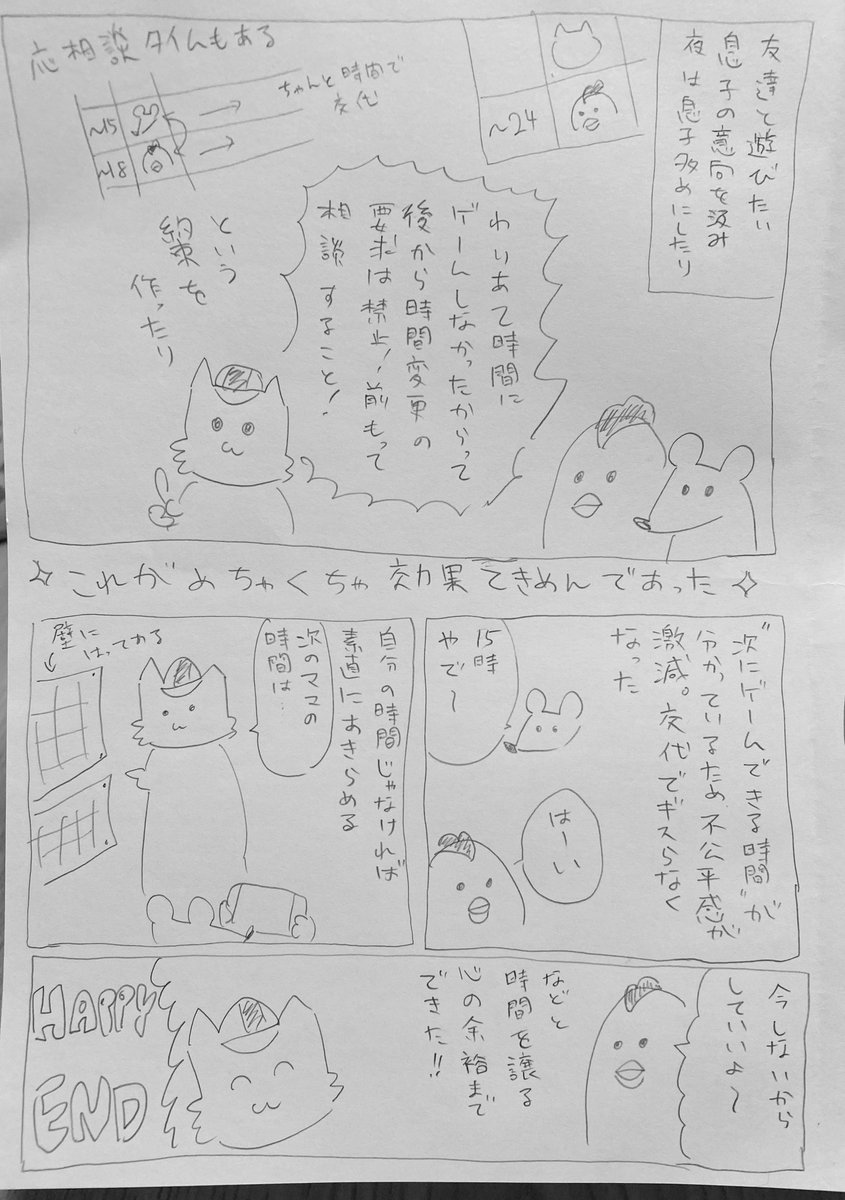 友達と遊びたい
息子の意向を汲み
夜は息子多めにしたり
~24
応相談タイムもある
ちゃんと時間で
交代
~15
~18
わりあて時間に
ゲームしなかったからって
後から時間変更の
要求は禁止!前もって
相談すること!
という
約束を
作ったり
これがめちゃくちゃ効果てきめんであった
"次にゲームできる時間"が
分かっているため不公平感が
激減。交代でギスらなく
なった
15時
やで～
はーい
自分の時間じゃなければ
素直にあきらめる
次のママの
時間は…
壁に
はってある
今しないから
していいよ～
などと
時間を譲る
心の余裕まで
できた!!
HAPPY
END